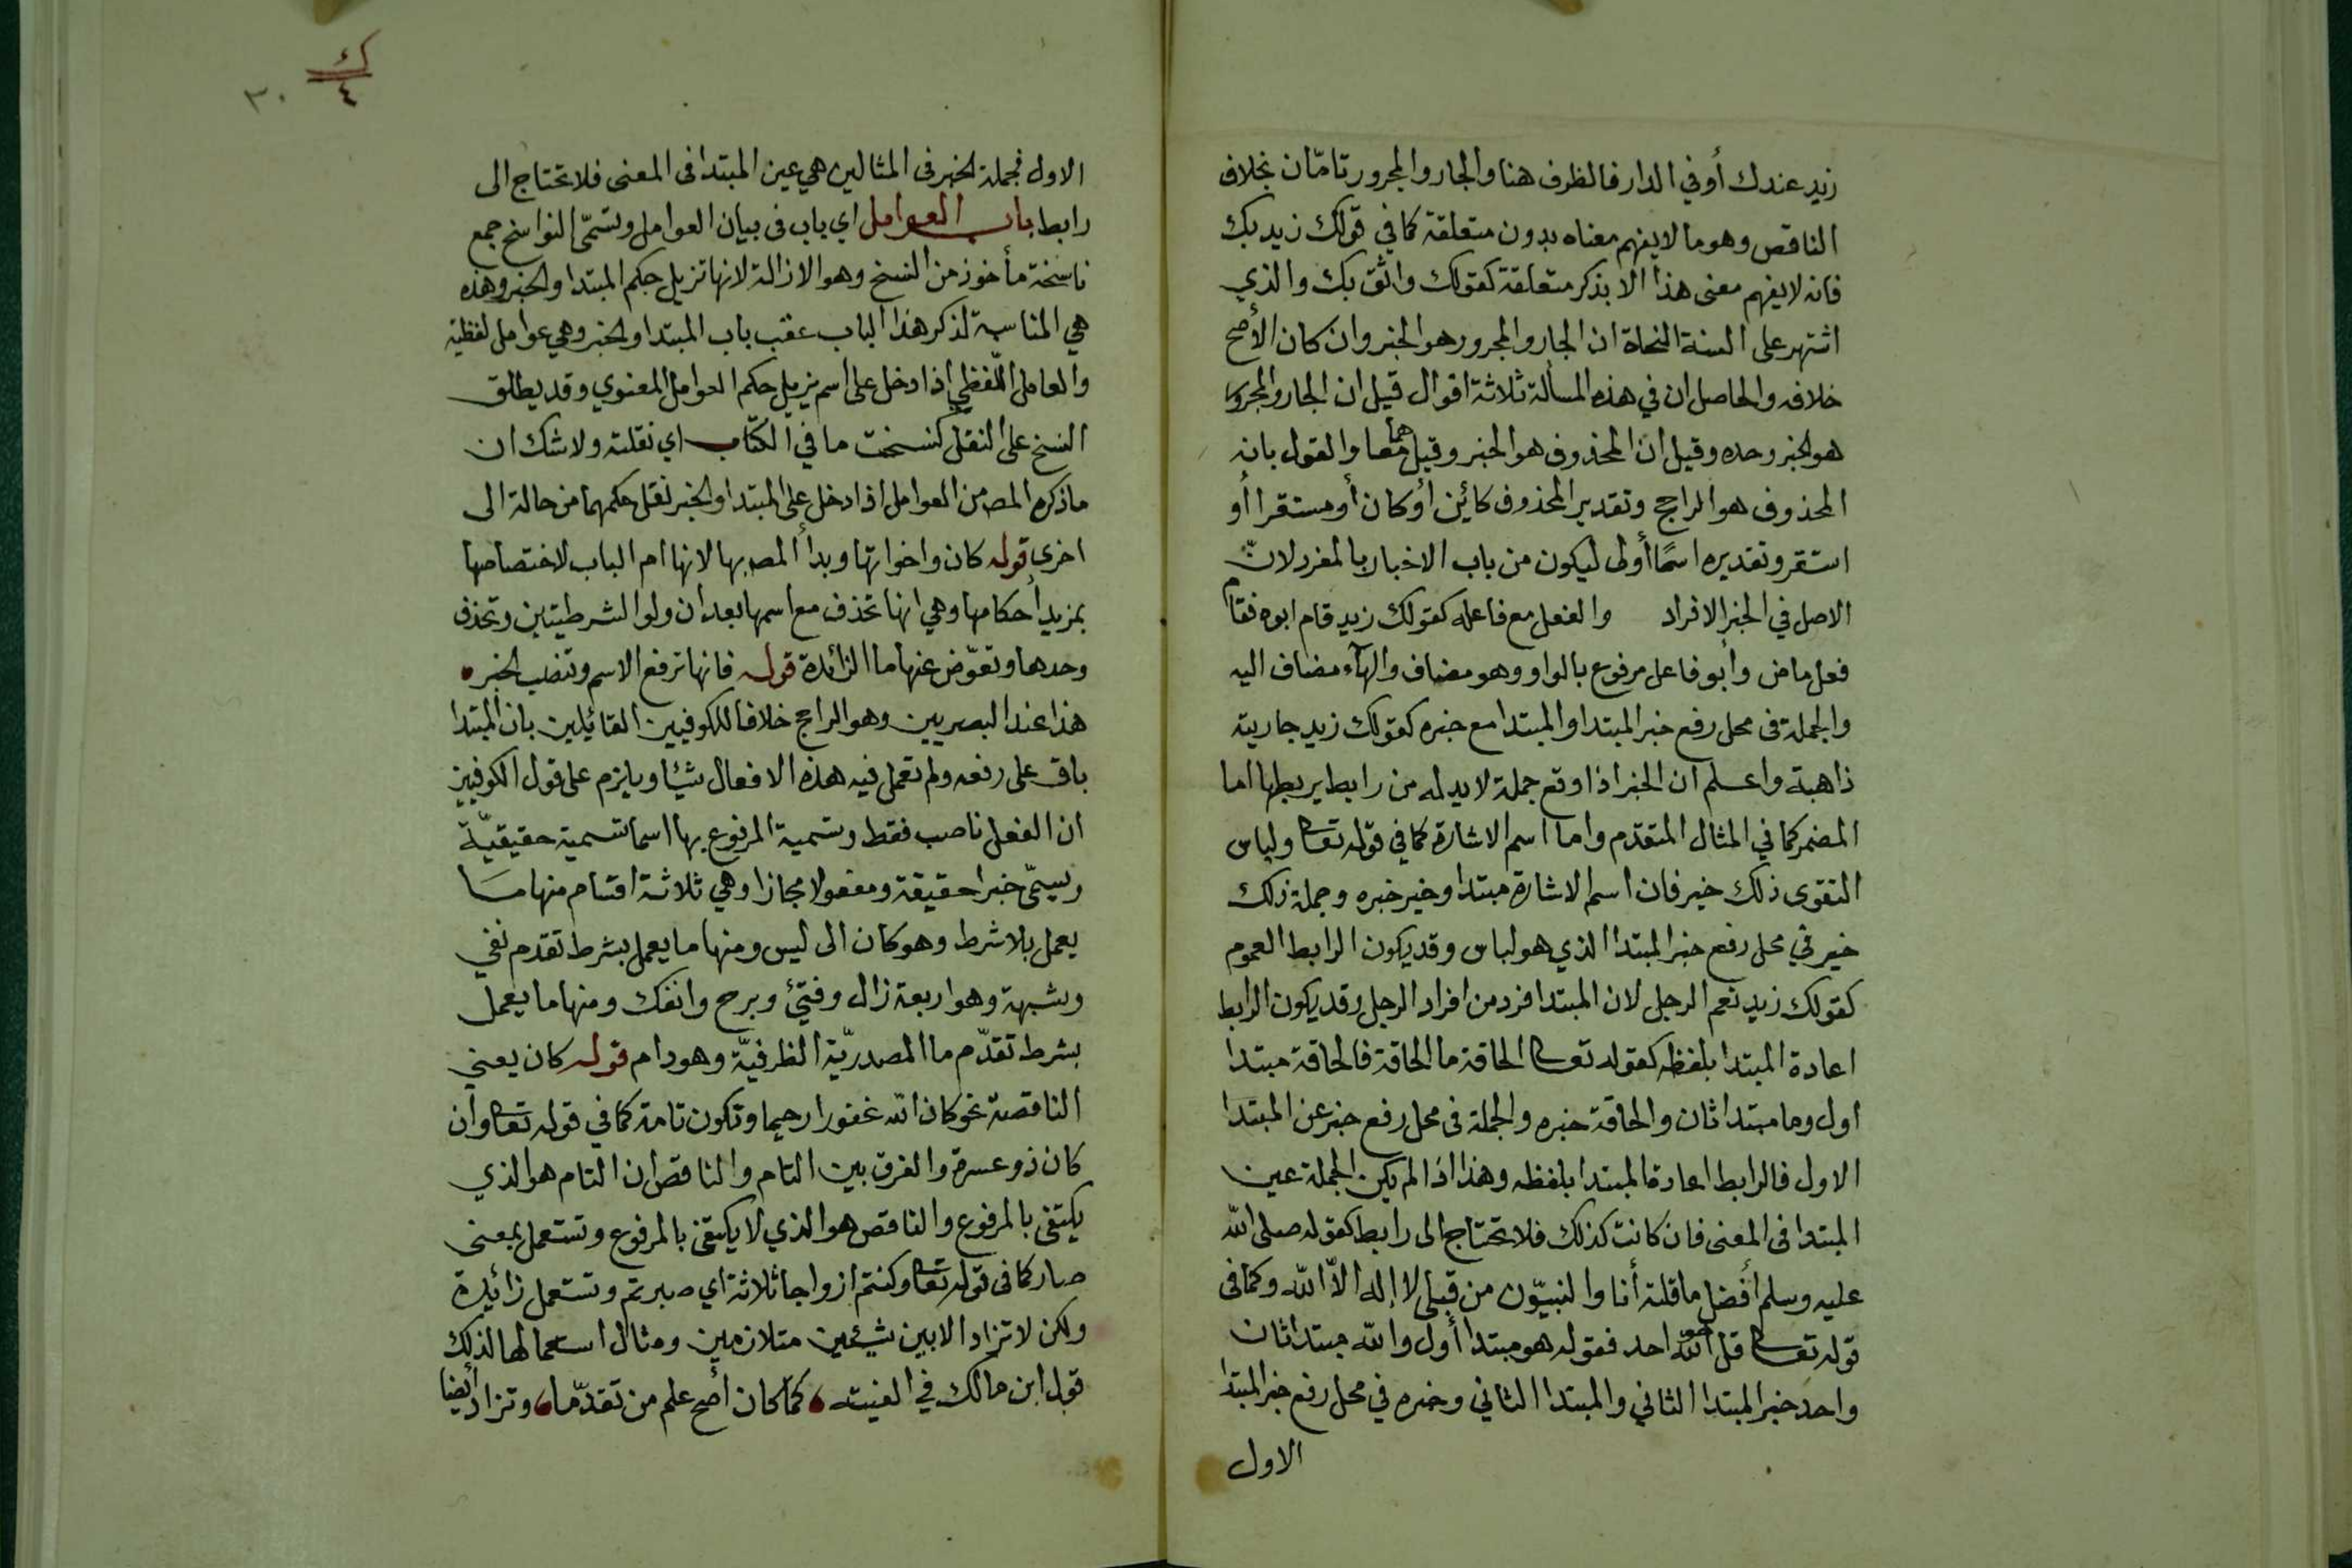 زيد عندك أو في الدار فالظرف هنا والجار والمجرور تامّان بخلاف
الناقص وهو ما لا يفهم معناه بدون متعلقة كما في قولك زيد بك
فانه لا يفهم معنى هذا الا بذكر متعلقة كقولك واثق بك والذي
اشتهر على السنة النحاة ان الجار والمجرور هو الخبر وان كان الأصح
خلافه والحاصل ان في هذه المسألة ثلاثة اقوال قيل ان الجار والمجرور
هو الخبر وحده وقيل ان المحذوف هو الخبر وقيل هما معا والقول بانه
المحذوف هو الراجح وتقدير المحذوف كائين أو كان أو مستقرا أو
استقر وتقديره اسمًا أولى ليكون من باب الاخبار بالمفرد لانّ
الاصل في الخبر الافراد والفعل مع فاعله كقولك زيد قام ابوه فقام
فعل ماض وأبو فاعل مرفوع بالواو وهو مضاف والهآء مضاف اليه
والجملة فى محل رفع خبر المبتدا والمبتدا مع خبره كقولك زيد جاريته
ذاهبة واعلم ان الخبر اذا وقع جملة لا بد له من رابط يربطها اما
المضمر كما في المثال المتقدم واما اسم الاشارة كما في قوله تعا ولباس
التقوى ذلك خير فان اسم الاشارة مبتدا وخير خبره وجملة ذلك
خير في محل رفع خبر المبتدا الذي هو لباس وقد يكون الرابط العموم
كقولك زيد نعم الرجل لان المبتدا فرد من افراد الرجل وقد يكون الرابط
اعادة المبتدا بلفظه كقوله تعا الحاقة ما الحاقة فالحاقة مبتدا
اول وما مبتدا ثان والحاقة خبره والجملة فى محل رفع خبر عن المبتدا
الاول فالرابط اعادة المبتدا بلفظه وهذا اذا لم يكن الجملة عين
المبتدا فى المعنى فان كانت كذلك فلا تحتاج الى رابط كقوله صلى الله
عليه وسلم أفضل ما قلته أنا والنبيّون من قبلى لا إله الاّ الله وكما فى
قوله تعا قل هو الله احد فقوله هو مبتدا أول والله مبتدا ثان
واحد خبر المبتدا الثاني والمبتدا الثاني وخبره في محل رفع خبر المبتدا
الاول
ك
٤
٣٠
الاول فجملة الخبر فى المثالين هي عين المبتدا فى المعنى فلا تحتاج الى
رابط باب العوامل اي باب فى بيان العوامل وتسمّى النواسخ جمع
ناسخة مأخوذ من النسخ وهو الازالة لانها تزيل حكم المبتدا والخبر وهذه
هي المناسبة لذكر هذا الباب عقب باب المبتدا والخبر وهي عوامل لفظية
والعامل اللّفظي إذا دخل على اسم يزيل حكم العوامل المعنوي وقد يطلق
النسخ على النقل كنسخت ما في الكتاب اي نقلته ولا شك ان
ما ذكره المص من العوامل اذا دخل على المبتدا والخبر نقل حكمهما من حالة الى
اخرى قوله كان واخواتها وبدأ المص بها لانها ام الباب لاختصاصها
بمزيد أحكامها وهي انها تحذف مع اسمها بعد ان ولو الشرطيتين وتحذف
وحدها وتعوّض عنها ما الزائدة قوله فانها ترفع الاسم وتنصب الخبر
هذا عند البصريين وهو الراجح خلافا للكوفيين القائيلين بان المبتدا
باق على رفعه ولم تعمل فيه هذه الافعال شيئا ويلزم على قول الكوفيين
ان الفعل ناصب فقط وتسمية المرفوع بها اسما تسمية حقيقيّة
ويسمّى خبرا حقيقة ومفعولا مجازا وهي ثلاثة اقسام منها ما
يعمل بلا شرط وهو كان الى ليس ومنها ما يعمل بشرط تقدم نفي
وشبهة وهو اربعة زال وفتئ وبرح وانفك ومنها ما يعمل
بشرط تقدّم ما المصدريّة الظرفيّة وهو دام قوله كان يعني
الناقصة نحو كان الله غفورا رحيما وتكون تامة كما في قوله تعا وان
كان ذو عسرة والفرق بين التام والناقص ان التام هو الذي
يكتفى بالمرفوع والناقص هو الذي لا يكتفى بالمرفوع وتستعمل بمعنى
صار كما فى قوله تعا وكنتم ازواجا ثلاثة اي صبرتم وتستعمل زائيدة
ولكن لا تزاد الا بين شيئين متلازمين ومثال استعمالها لذلك
قول ابن مالك في الفيته كما كان أصح علم من تقدّما وتزاد أيضا